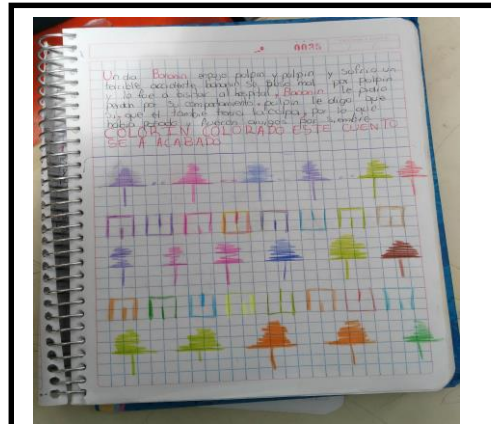 0095
Un dia Banonin enpujo palpin y palpin y Sufrio un
terrible accidente, banonin se puso mal por palpin
y lo fue a buscar al hospital, Banonin le pidio
perdon por su comportamiento, palpin le dijo que
que el tambin tenia la culpa, por lo que
habia pasado y fueron amigos por siempre
COLORIN COLORADO ESTE CUENTO
SE A ACABADO